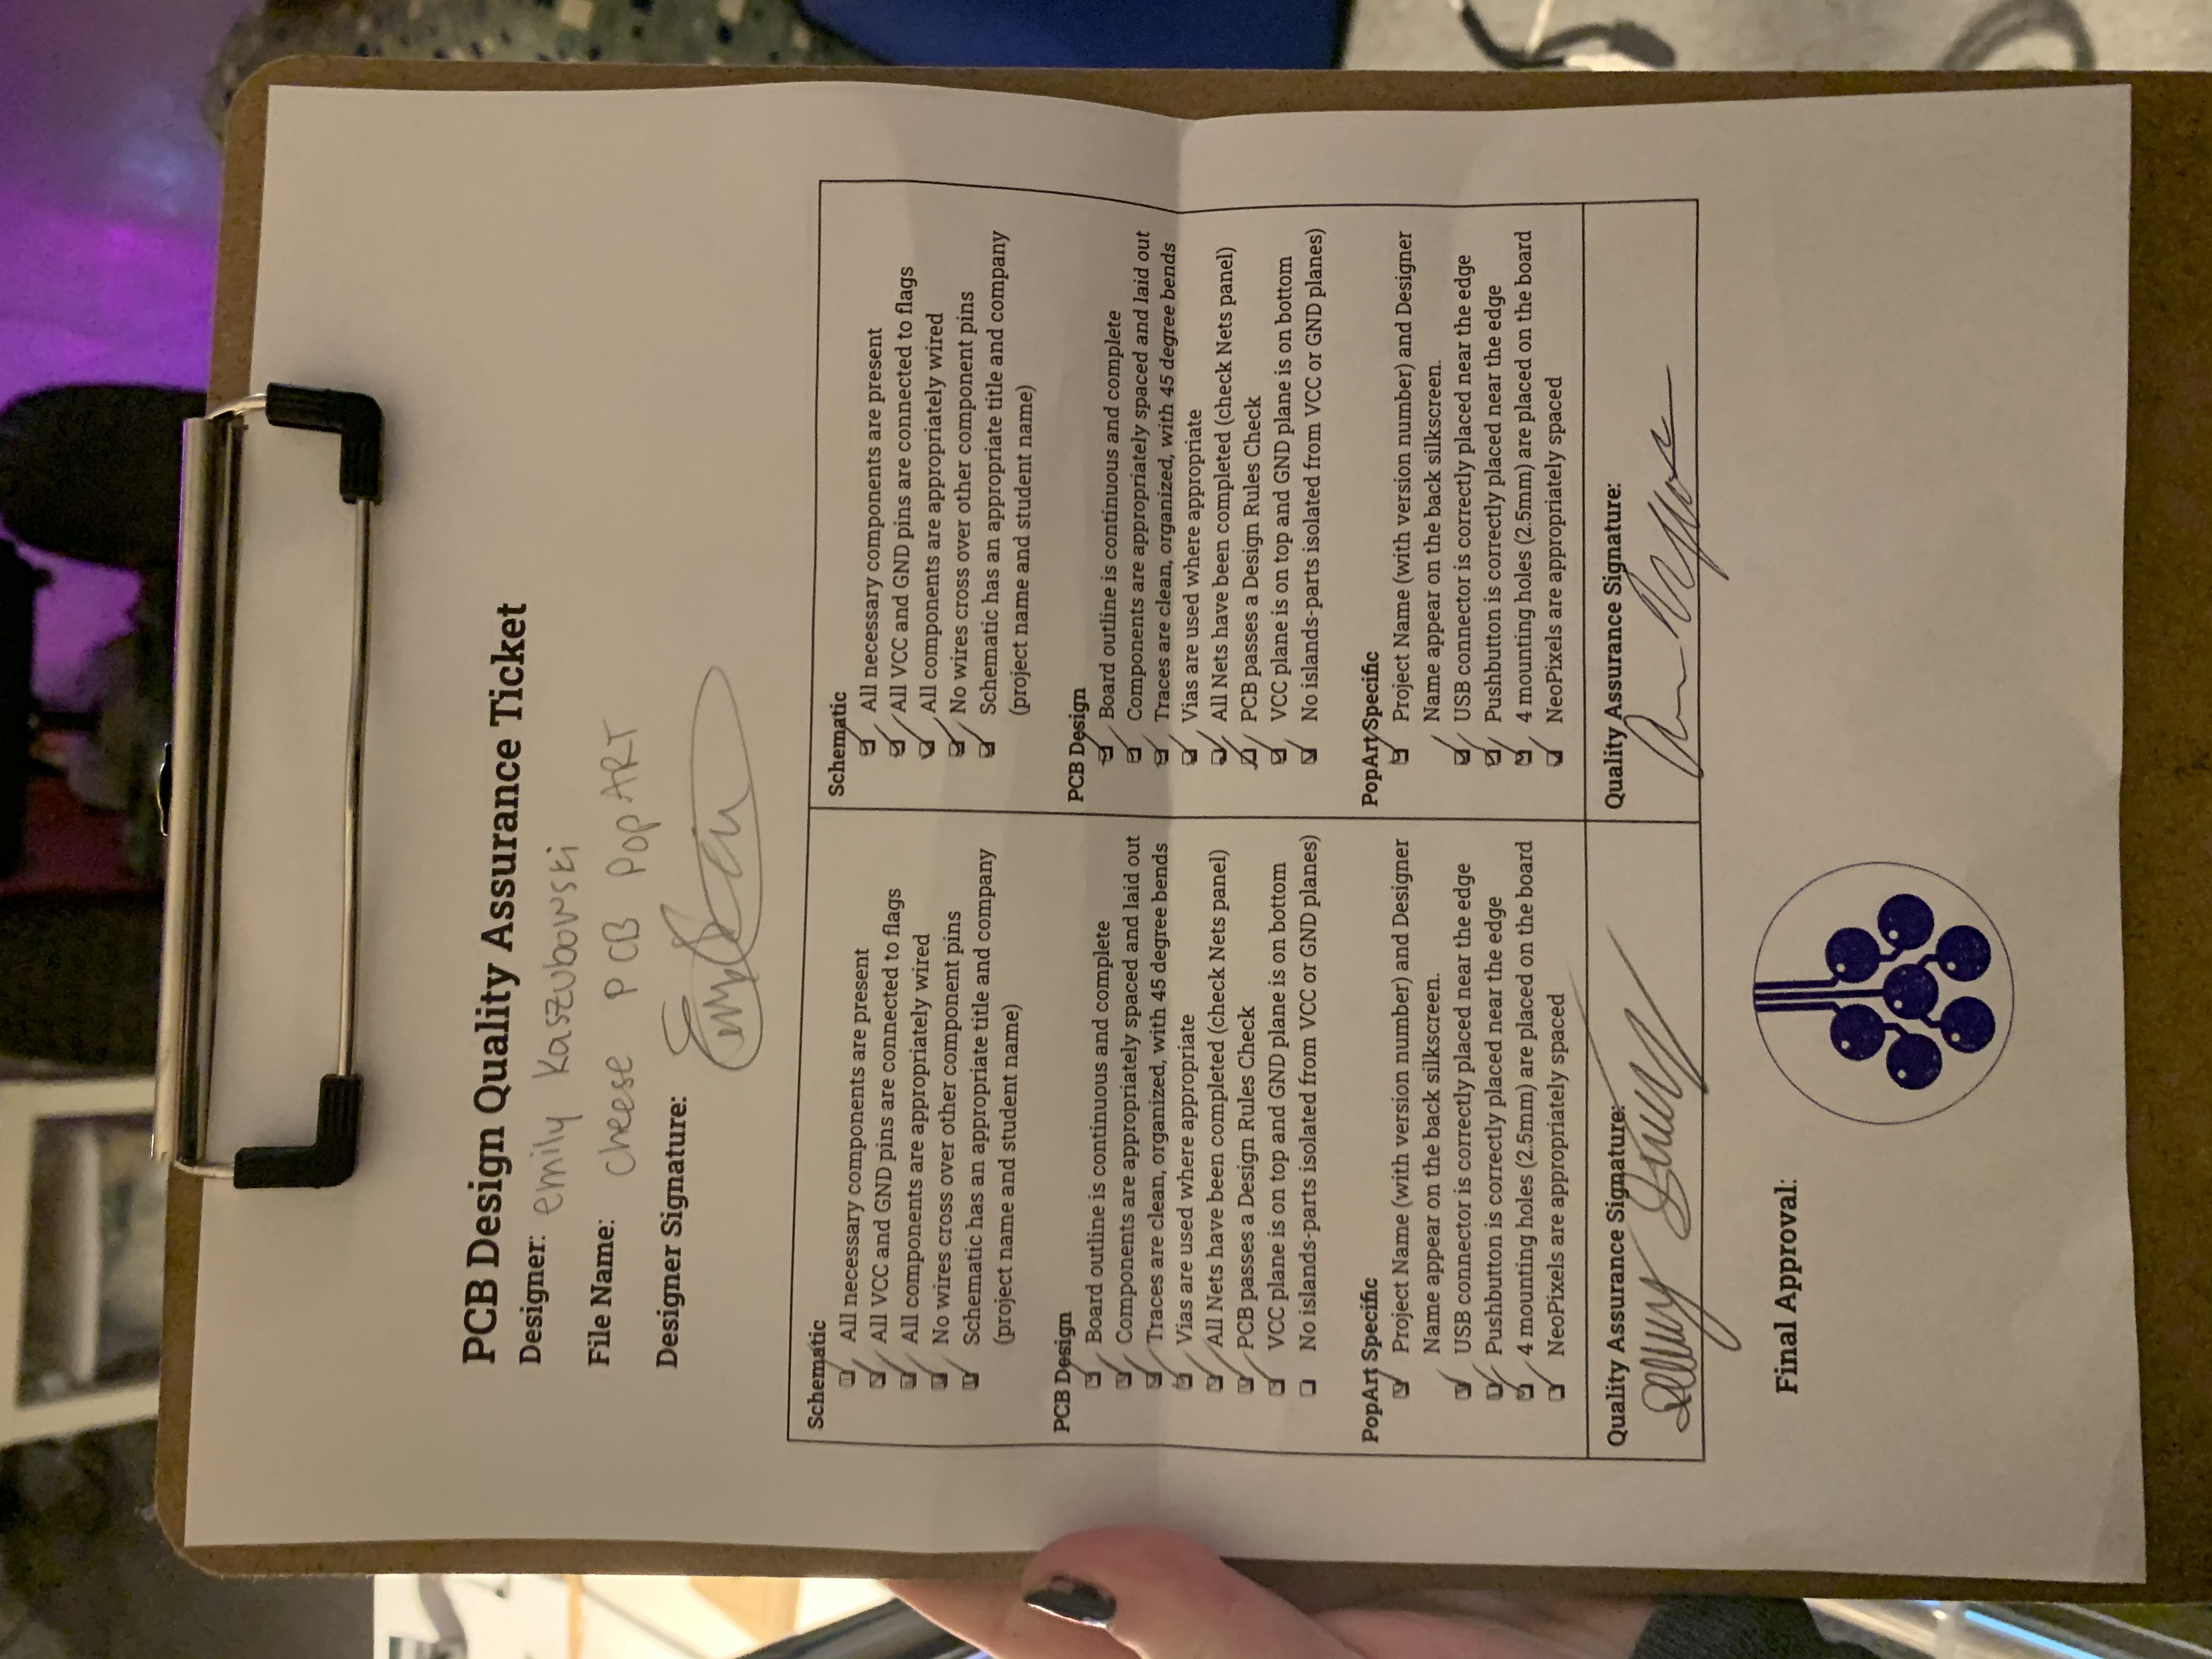 PCB Design Quality Assurance Ticket
Designer: emily Kaszubowski
File Name: cheese PCB PopART
Designer Signature:
Schematic
All necessary components are present
All VCC and GND pins are connected to flags
All components are appropriately wired
No wires cross over other component pins
Schematic has an appropriate title and company
(project name and student name)
PCB Design
Board outline is continuous and complete
Components are appropriately spaced and laid out
Traces are clean, organized, with 45 degree bends
Vias are used where appropriate
All Nets have been completed (check Nets panel)
PCB passes a Design Rules Check
VCC plane is on top and GND plane is on bottom
No islands-parts isolated from VCC or GND planes)
PopArt Specific
Project Name (with version number) and Designer
Name appear on the back silkscreen.
USB connector is correctly placed near the edge
Pushbutton is correctly placed near the edge
4 mounting holes (2.5mm) are placed on the board
NeoPixels are appropriately spaced
Quality Assurance Signature:
Schematic
All necessary components are present
All VCC and GND pins are connected to flags
All components are appropriately wired
No wires cross over other component pins
Schematic has an appropriate title and company
(project name and student name)
PCB Design
Board outline is continuous and complete
Components are appropriately spaced and laid out
Traces are clean, organized, with 45 degree bends
Vias are used where appropriate
All Nets have been completed (check Nets panel)
PCB passes a Design Rules Check
VCC plane is on top and GND plane is on bottom
No islands-parts isolated from VCC or GND planes)
PopArt Specific
Project Name (with version number) and Designer
Name appear on the back silkscreen.
USB connector is correctly placed near the edge
Pushbutton is correctly placed near the edge
4 mounting holes (2.5mm) are placed on the board
NeoPixels are appropriately spaced
Quality Assurance Signature:
Final Approval: